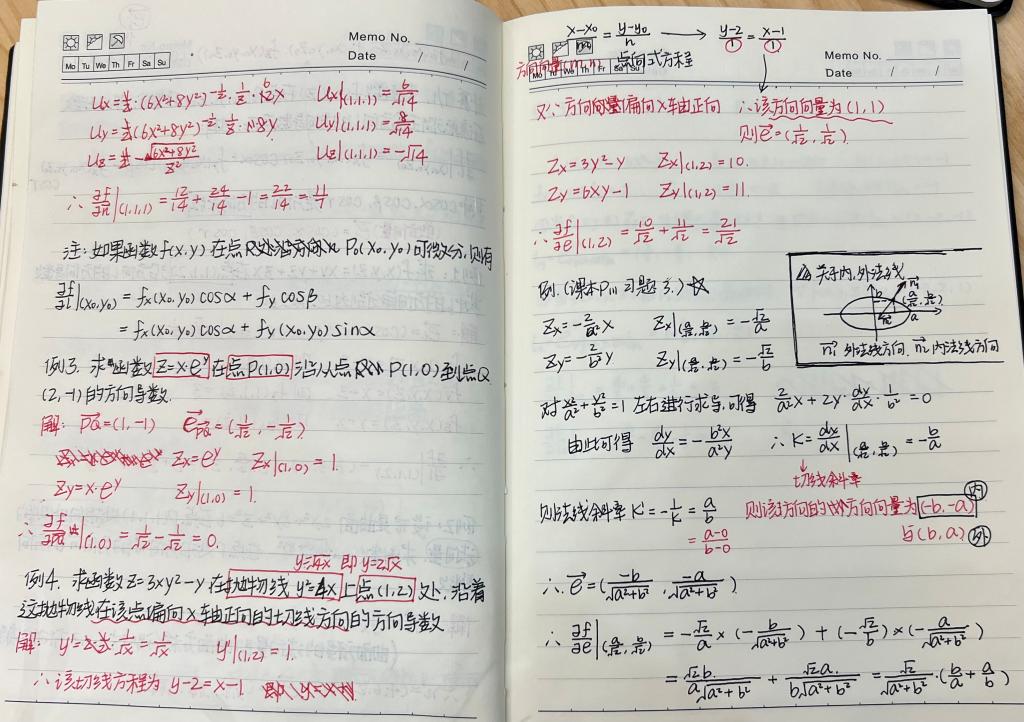 Memo No.
Mo Tu We Th Fr Sa Su
Date / /
Ux=½·(6x²+8y²)^-½·1/z·12x Ux|(1,1,1)=6/√14
Uy=½(6x²+8y²)^-½·1/z·8y Uy|(1,1,1)=8/√14
Uz=-√(6x²+8y²)/z² Uz|(1,1,1)=-√14
∴ ∂f/∂n|(1,1,1)=12/14+24/14-1=22/14=11/7
注:如果函数f(x,y)在点P₀(x₀,y₀)可微分,则有
∂f/∂l|(x₀,y₀)=fx(x₀,y₀)cosα+fy cosβ
=fx(x₀,y₀)cosα+fy(x₀,y₀)sinα
例3.求函数z=x·e^y在点P(1,0)沿从点P(1,0)到点Q
(2,-1)的方向导数.
解: PQ=(1,-1) e_PQ=(1/√2,-1/√2)
Zx=e^y Zx|(1,0)=1.
Zy=x·e^y Zy|(1,0)=1.
∴ ∂f/∂l|(1,0)=1/√2-1/√2=0.
y=√4x 即y=2√x
例4.求函数z=3xy²-y在抛物线y²=4x上点(1,2)处,沿着
这抛物线在该点偏向x轴正向的切线方向的方向导数
解: y'=2·½·1/√x=1/√x y'|(1,2)=1.
∴该切线方程为 y-2=x-1.
x-x₀/m=y-y₀/n → y-2/1=x-1/1
方向向量(m,n) 点向式方程
Memo No.
Mo Tu We Th Fr Sa Su
Date / /
又∵方向向量偏向x轴正向 ∴该方向向量为(1,1)
则e=(1/√2,1/√2).
Zx=3y²-y Zx|(1,2)=10.
Zy=6xy-1 Zy|(1,2)=11.
∴ ∂f/∂e|(1,2)=10/√2+11/√2=21/√2
关于内、外法线
n₁
(a/√2,b/√2)
b
n₂
a
n₁外法线方向. n₂内法线方向
例.(课本P₁₁₁习题3.)
Zx=-2/a²x Zx|(a/√2,b/√2)=-√2/a
Zy=-2/b²y Zy|(a/√2,b/√2)=-√2/b
对x²/a²+y²/b²=1左右进行求导,可得 2/a²x+2y·dy/dx·1/b²=0
由此可得 dy/dx=-b²x/a²y ∴K=dy/dx|(a/√2,b/√2)=-b/a
切线斜率
则法线斜率K'=-1/K=a/b 则该方向的方向向量为(-b,-a) 内
=a-0/b-0 与(b,a) 外
∴e=(-b/√(a²+b²),-a/√(a²+b²))
∴ ∂f/∂e|(a/√2,b/√2)=-√2/a×(-b/√(a²+b²))+(-√2/b)×(-a/√(a²+b²))
=√2b/a√(a²+b²)+√2a/b√(a²+b²)=√2/√(a²+b²)·(b/a+a/b)